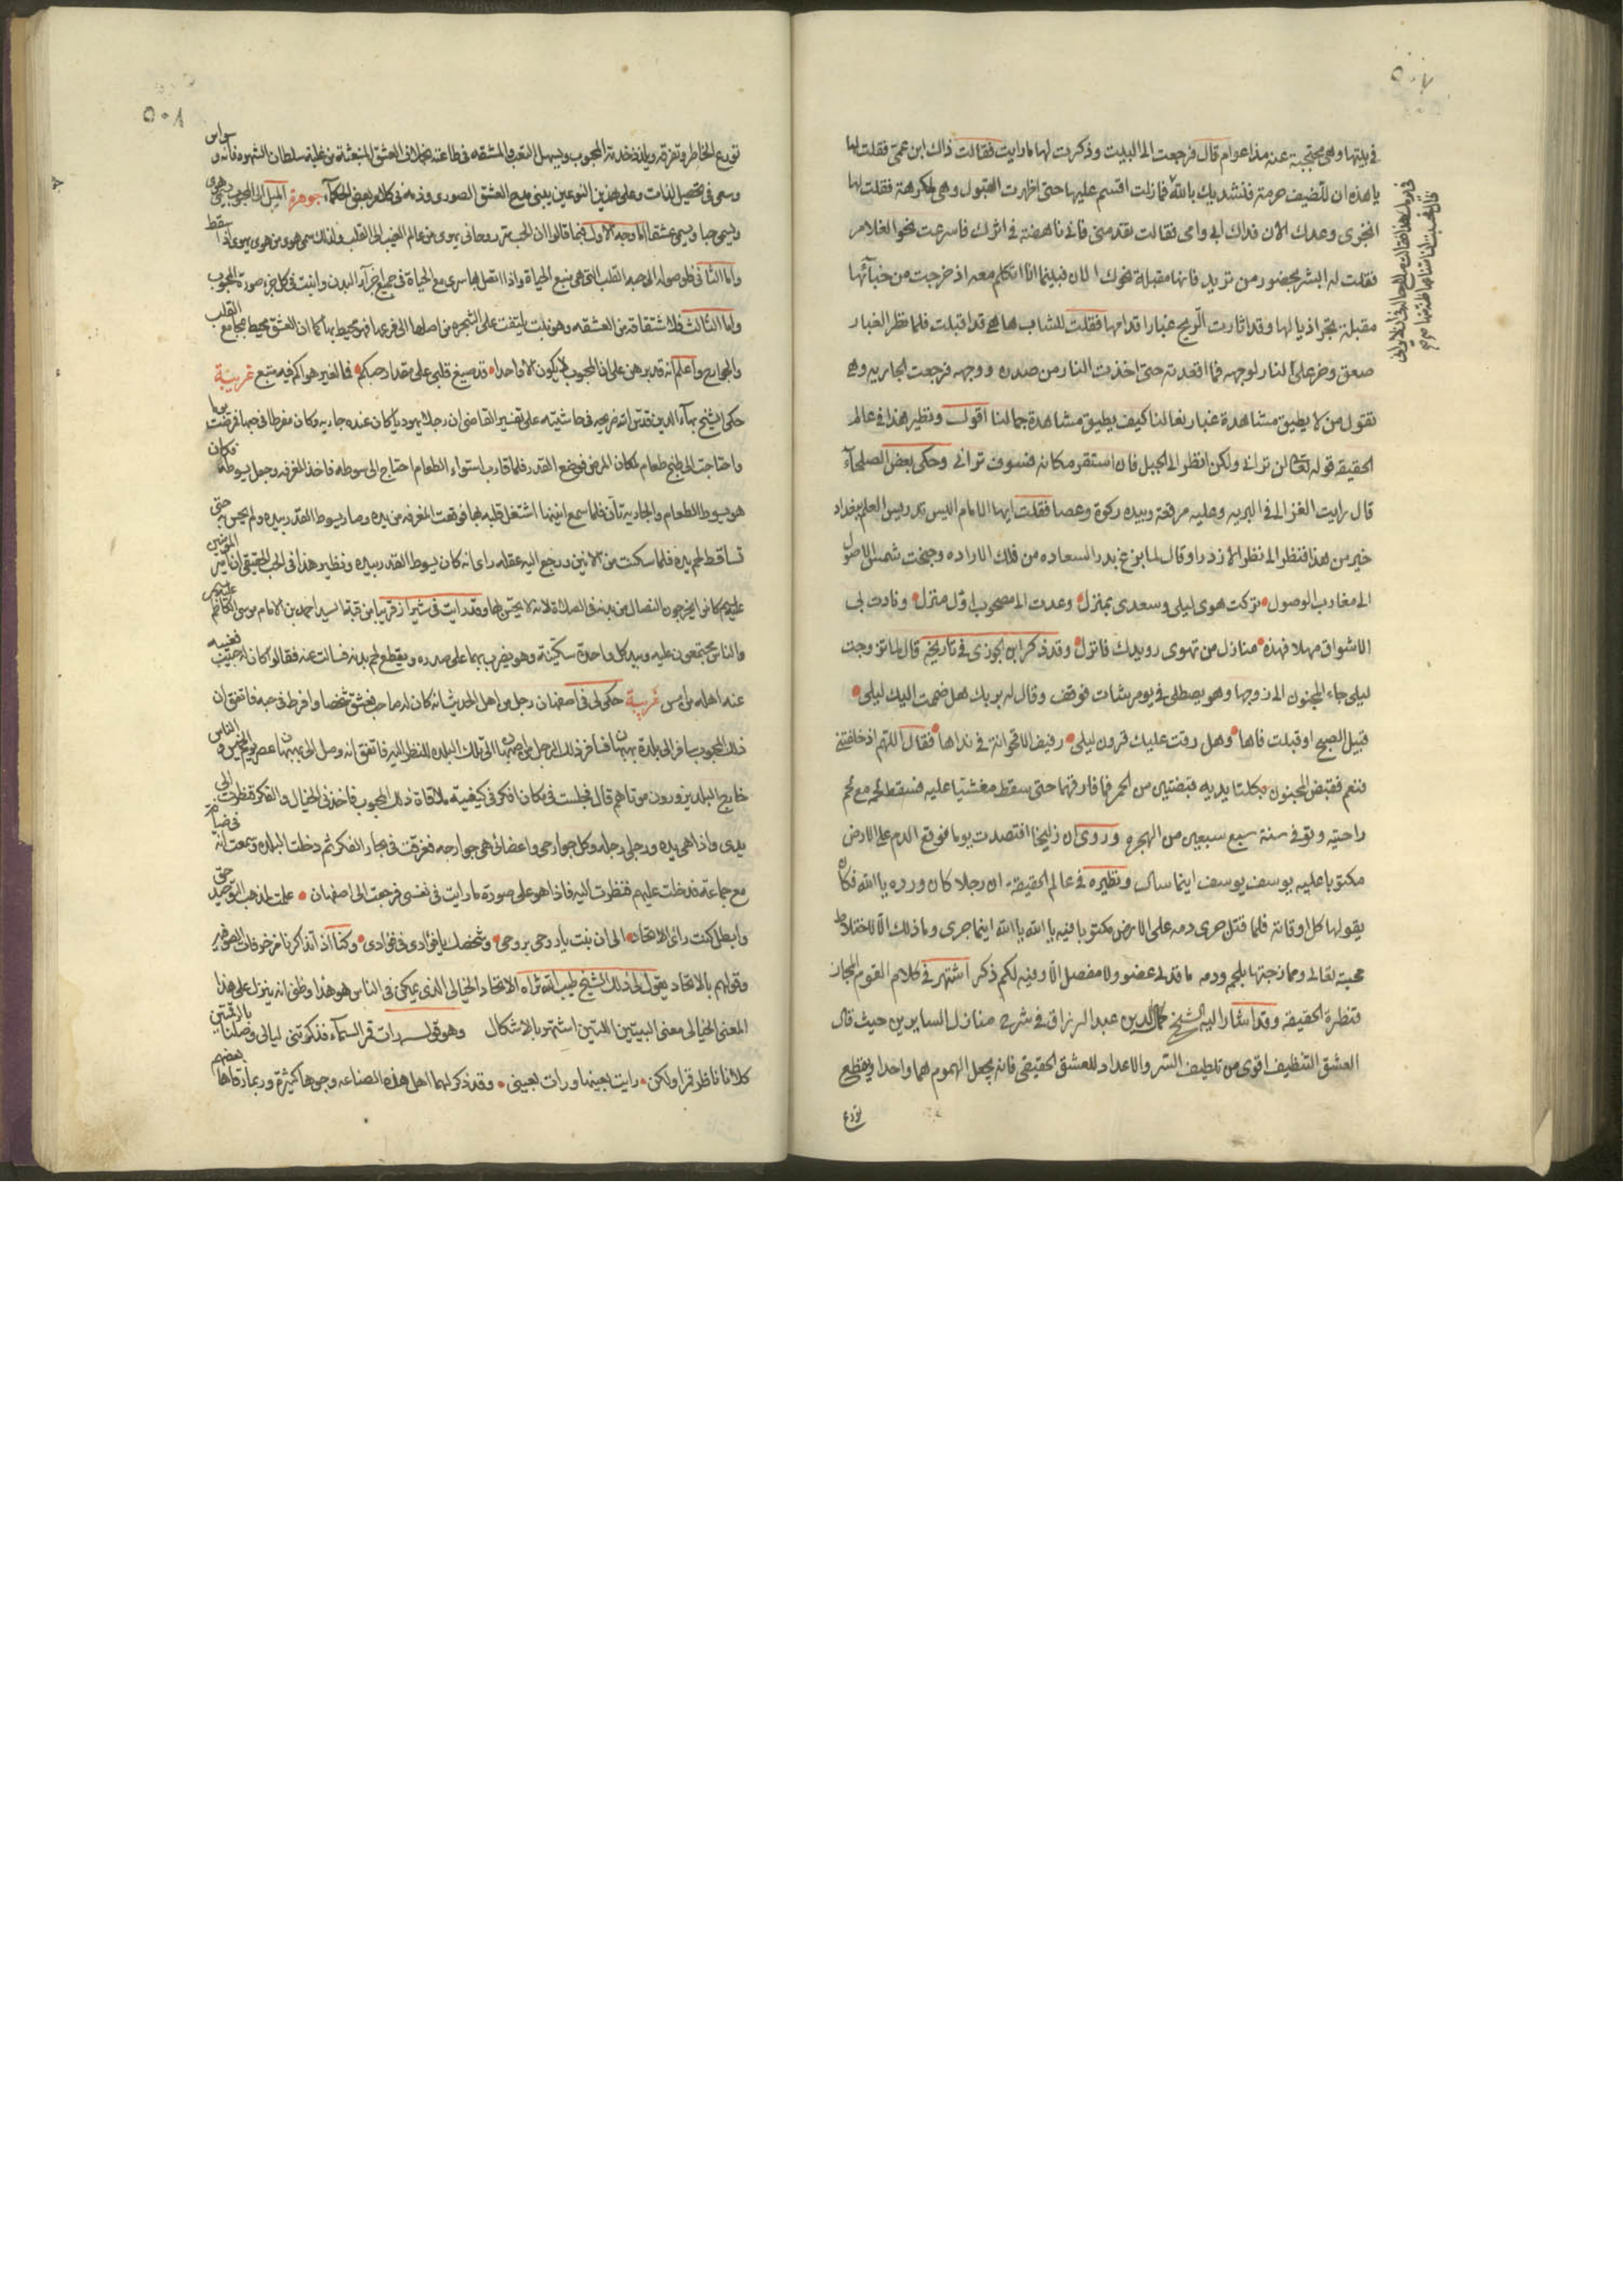 ٥٠٧
في بيتها وهي محتجبة عنه مذ اعوام قال فرجعت الى البيت وذكرت لها ما رايت فقالت ذاك ابن عمي فقلت لها
يا هذه ان للضيف حرمة فنشدتك بالله فما زلت اقسم عليها حتى اظهرت القبول وهي مكرهة فقلت لها
انجزي وعدك الان فداك ابي وامي فقالت تقدمني فاني ناهضة في اثرك فاسرعت نحو الغلام
فقلت له ابشر بحضور من تريد فانها مقبلة نحوك الان فبينما انا اتكلم معه اذ خرجت من خبائها
مقبلة تجر اذيالها وقد اثارت الريح غبار اقدامها فقلت للشاب ها هي قد اقبلت فلما نظر الغبار
صعق وخر على النار لوجهه فما اقعدته حتى اخذت النار من صدره ووجهه فرجعت الجاريه وهي
تقول من لا يطيق مشاهدة غبار نعالنا كيف يطيق مشاهدة جمالنا اقول ونظير هذا في عالم
الحقيقه قوله تعالى لن تراني ولكن انظر الى الجبل فان استقر مكانه فسوف تراني وحكى بعض الصلحآء
قال رايت الغزالي في البريه وعليه مرقعة وبيده ركوة وعصا فقلت ايها الامام اليس تدريس العلم ببغداد
خير من هذا فنظر الي نظر الازدرا وقال لما بزغ بدر السعاده من فلك الاراده وجنحت شمس الاصول
الى مغارب الوصول تركت هوى ليلى وسعدى بمنزل وعدت الى مصحوب اول منزل ونادت بي
الاشواق مهلا فهذه منازل من تهوى رويدك فانزل وقد ذكر ابن الجوزي في تاريخه قال لما تزوجت
ليلى جاء المجنون الى زوجها وهو يصطلي في يوم شات فوقف وقال له بربك هل ضممت اليك ليلى
قبيل الصبح او قبلت فاها وهل رفت عليك قرون ليلى رفيف الاقحوانة في نداها فقال اللهم اذ حلفتني
فنعم فقبض المجنون بكلتا يديه قبضتين من الجمر فما فارقهما حتى سقط مغشيا عليه فسقط الجمر مع لحم
راحتيه وتوفي في سنة سبع سبعين من الهجره وروى ان زليخا افتصدت يوما فوقع الدم على الارض
مكتوبا عليه يوسف يوسف اينما سال ونظيره في عالم الحقيقة ان رجلا كان ورده يا الله فكان
يقولها كل اوقاته فلما قتل جرى دمه على الارض مكتوبا فيه يا الله يا الله اينما جرى وما ذلك الا لاختلاط
محبته تعالى وممازجتها بلحمه ودمه ما قد لي عضو ولا مفصل الا وفيه لكم ذكر اشتهر في كلام القوم المجاز
قنطرة الحقيقه وقد اشار اليه الشيخ كمال الدين عبد الرزاق في شرح منازل السايرين حيث قال
العشق النظيف اقوى من تلطيف السر والاعداد للعشق الحقيقي فانه يجعل الهموم هما واحدا ويقطع
توزع
٥٠٨
توزع الخاطر وتفرقه ويلذذ خدمة المحبوب ويسهل التعب والمشقه في طاعته بخلاف العشق المنبعثة من غلبة سلطان الشهوه فانه وسواس
وسعى في تحصيل اللذات وعلى هذين النوعين يبنى مدح العشق الصوري وذمه في كلام بعض الحكمآء جوهرة الميل الى المحبوب يسمى هوى
ويسمى حبا ويسمى عشقا اما وجه الاول فبما قالوا ان الحب سر روحاني يهوى من عالم الغيب الى القلب ولذلك سمي هوى من هوى يهوى اذا سقط
واما الثاني فلوصوله الى حبة القلب التي هي منبع الحياة واذا اتصل بها سرى مع الحياة في جميع اجزآء البدن واثبت في كل جزء صورة المحبوب
واما الثالث فلاشتقاقه من العشقه وهو نبت يلتف على الشجره من اصلها الى فرعها فهو محيط بها كما ان العشق محيط بمجامع القلب
والجوارح واعلم انه قد برهن على ان المحبوب لا يكون الا واحدا قد صيغ قلبي على مقدار حبكم فما لغير هواكم فيه متسع غريبة
حكى الشيخ بهاء الدين قدس الله ضريحه في حاشيته على تفسير القاضي ان رجلا يهوديا كان عنده جاريه وكان مفرطا في حبها فمرضت يوما
واحتاجت الى طبخ طعام لمكان المرض فوضع القدر فلما قارب استواء الطعام احتاج الى سوطه فاخذ المغرفه وجعل يسوطه فكان
هو يسوط الطعام والجاريه تأن فلما سمع انينها اشتغل قلبه بها فوقعت المغرفه من يده وصار يسوط القدر بيده ولم يحس حتى
تساقط لحم يده فلما سكنت من الانين ورجع اليه عقله راى انه كان يسوط القدر بيده ونظير هذا في الحب الحقيقي ان امير المؤمنين
عليه السلم كانوا يخرجون النصال من بدنه في الصلاة لانه لا يحس بها وقد رايت في شيراز قريبا من قبة السيد احمد بن الامام موسى الكاظم
والناس مجتمعون عليه وبيد كل واحدة سكينة وهو يضرب بهما على صدره ويقطع لحم بدنه فسالت عنه فقالوا كان له حبيب
عند اهله من امس غريبة حكى لي في اصفهان رجل من اهل الحديث انه كان له صاحب فعشق شخصا وافرط في حبه فاتفق ان
ذلك المحبوب سافر الى بلدة فسافر ذلك الرجل من اصفهان الى تلك البلده للنظر اليه فاتفق انه وصل الى عصر يوم الخميس والناس
خارج البلد يزورون موتاهم قال فجلست في مكان افكر في كيفية ملاقاة ذلك المحبوب فاخذني الخيال والفكر فنظرت الى
يدي واذا هي يده ورجلي رجله وكل جوارحي واعضائي هي جوارحه فغرقت في بحار الفكر ثم دخلت البلده وسمعت انه
مع جماعة فدخلت عليهم فنظرت اليه فاذا هو على صورة ما رايت في نفسي فرجعت الى اصفهان علمت لمذهب التوحيد حق
وابطل كنت رائ الاتحاد الى ان بنت يا روحي بروحي وشخصك يا فؤادي في فؤادي وكنا اذ انذاكرنا مزخرفات الصوفيه
وقولهم بالاتحاد يقول لي ذلك الشيخ طيب الله ثراه الاتحاد الخيالي الذي يمكن في الناس هو هذا وظني انه ينزل على هذا
المعنى الخيالي معنى البيتين اللتين اشتهر بالاشكال وهو قوله رات قمر السمآء فذكرتني ليالي وصلنا بالرقمتين
كلانا ناظر قمرا ولكن رايت بعينها ورات بعيني وقد ذكر لهما اهل هذه الصناعه وجوها كثيرة وربما رقاها بعضهم